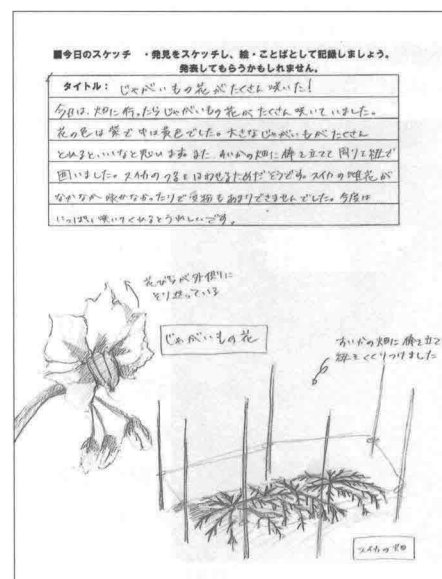 ■今日のスケッチ ・発見をスケッチし、絵・ことばとして記録しましょう。
発表してもらうかもしれません。
タイトル： じゃがいもの花がたくさん咲いた!
今日は、畑に行ったらじゃがいもの花がたくさん咲いていました。
花の色は紫で中は黄色でした。大きなじゃがいもがたくさん
とれるといいなと思います。また、すいかの畑に棒を立てて周りを紐で
囲いました。スイカのつるをはわせるためだそうです。スイカの雌花が
なかなか咲かなかったりで受粉もあまりできませんでした。今度は
いっぱい咲いてくれるとうれしいです。
花びらが外側に
そり返っている
じゃがいもの花
すいかの畑に棒を立て
紐をくくりつけました
スイカの畑